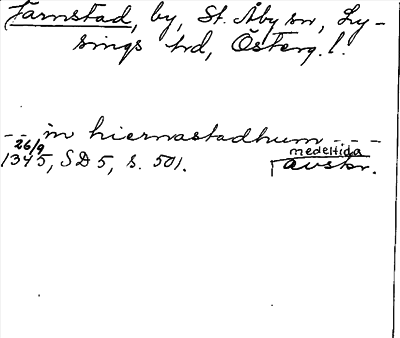 Järnstad, by, St. Åby sn, Ly-
sings hd, Österg. l.
-- in hiernastadhum ---
26/9
1345, SD 5, s. 501.
medeltida
avskr.